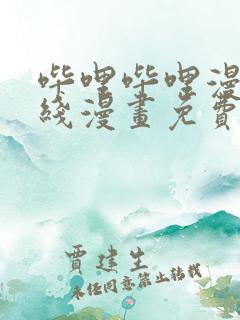 哔哩哔哩漫
綫漫畫免費
賈建生
未任同意禁止转载